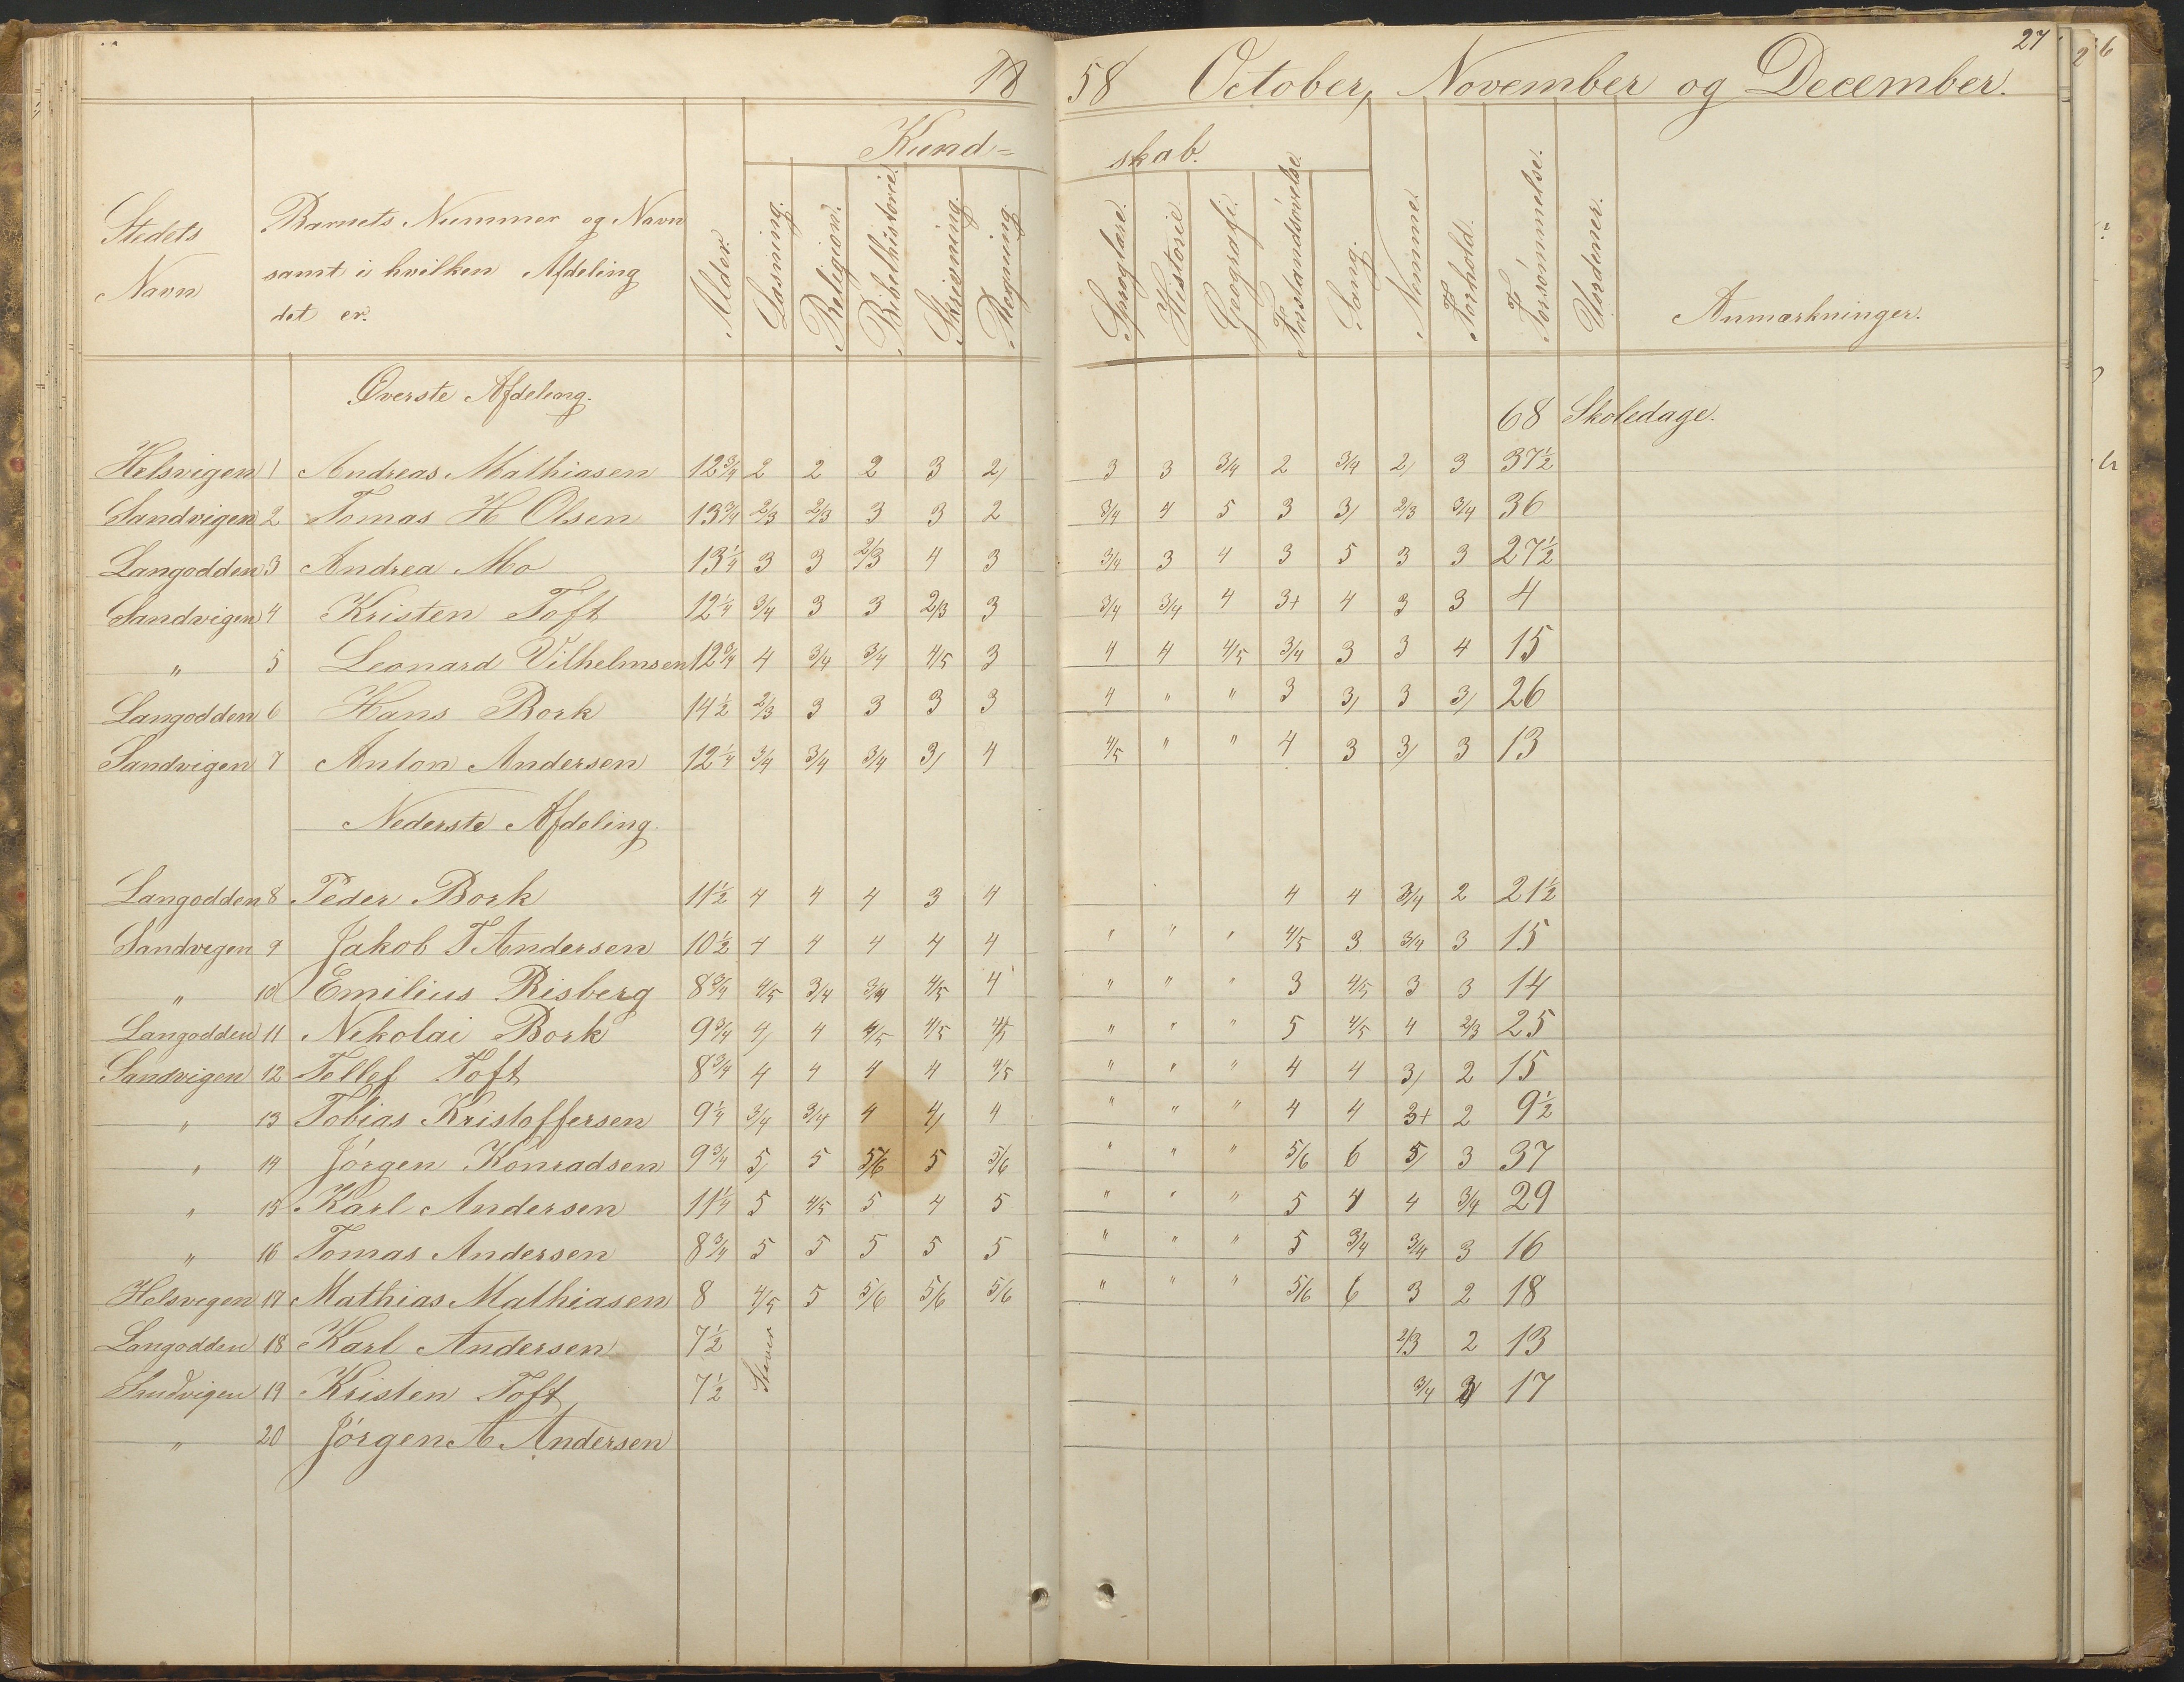 18 58 October, November og December. 27
Kund= skab.
Stedets Navn
Barnets Nummer og Navn
samt i hvilken Afdeling
det er.
Alder.
Læsning.
Religion.
Bibelhistorie.
Skrivning.
Regning.
Sproglære.
Historie.
Geografi.
Forstandsøvelse.
Sang.
Nemme.
Forhold.
Forsømmelse.
Uordener.
Anmærkninger.
Øverste Afdeling.
68 Skoledage.
Helsvigen 1 Andreas Mathiasen 12 3/4 2 2 2 3 2/ 3 3 3/4 2 3/4 2/ 3 37 1/2
Sandvigen 2 Tomas H Olsen 13 3/4 2/3 2/3 3 3 2 3/4 4 5 3 3/ 2/3 3/4 36
Langodden 3 Andrea Mo 13 1/4 3 3 2/3 4 3 3/4 3 4 3 5 3 3 27 1/2
Sandvigen 4 Kristen Toft 12 1/4 3/4 3 3 2/3 3 3/4 3/4 4 3+ 4 3 3 4
" 5 Leonard Vilhelmsen 12 3/4 4 3/4 3/4 4/5 3 4 4 4/5 3/4 3 3 4 15
Langodden 6 Hans Bork 14 1/2 2/3 3 3 3 3 4 " " 3 3/ 3 3/ 26
Sandvigen 7 Anton Andersen 12 1/4 3/4 3/4 3/4 3/ 4 4/5 " " 4 3 3/ 3 13
Nederste Afdeling.
Langodden 8 Peder Bork 11 1/2 4 4 4 3 4 4 4 3/4 2 21 1/2
Sandvigen 9 Jakob T Andersen 10 1/2 4 4 4 4 4 " " " 4/5 3 3/4 3 15
" 10 Emilius Risberg 8 3/4 4/5 3/4 3/4 4/5 4 " " " 3 4/5 3 3 14
Langodden 11 Nikolai Bork 9 3/4 4/ 4 4/5 4/5 4/5 " " " 5 4/5 4 2/3 25
Sandvigen 12 Tellef Toft 8 3/4 4 4 4 4 4/5 " " " 4 4 3/ 2 15
" 13 Tobias Kristoffersen 9 1/4 3/4 3/4 4 4/ 4 " " " 4 4 3+ 2 9 1/2
" 14 Jörgen Konradsen 9 3/4 5/ 5 5/6 5 5/6 " " " 5/6 6 5/ 3 37
" 15 Karl Andersen 11 1/4 5 4/5 5 4 5 " " " 5 4 4 3/4 29
" 16 Tomas Andersen 8 3/4 5 5 5 5 5 " " " 5 3/4 3/4 3 16
Helsvigen 17 Mathias Mathiasen 8 4/5 5 5/6 5/6 5/6 " " " 5/6 6 3 2 18
Langodden 18 Karl Andersen 7 1/2 Staver 2/3 2 13
Sandvigen 19 Kristen Toft 7 1/2 3/4 17
" 20 Jörgen A Andersen